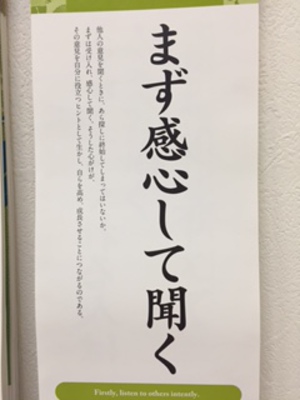 まず感心して聞く
他人の意見を聞くときに、あら探しに終始してしまってはいないか。
まずは受け入れ、感心して聞く。そうした心がけが、
その意見を自分に役立つヒントとして生かし、自らを高め、成長させることにつながるのである。
Firstly, listen to others intently.